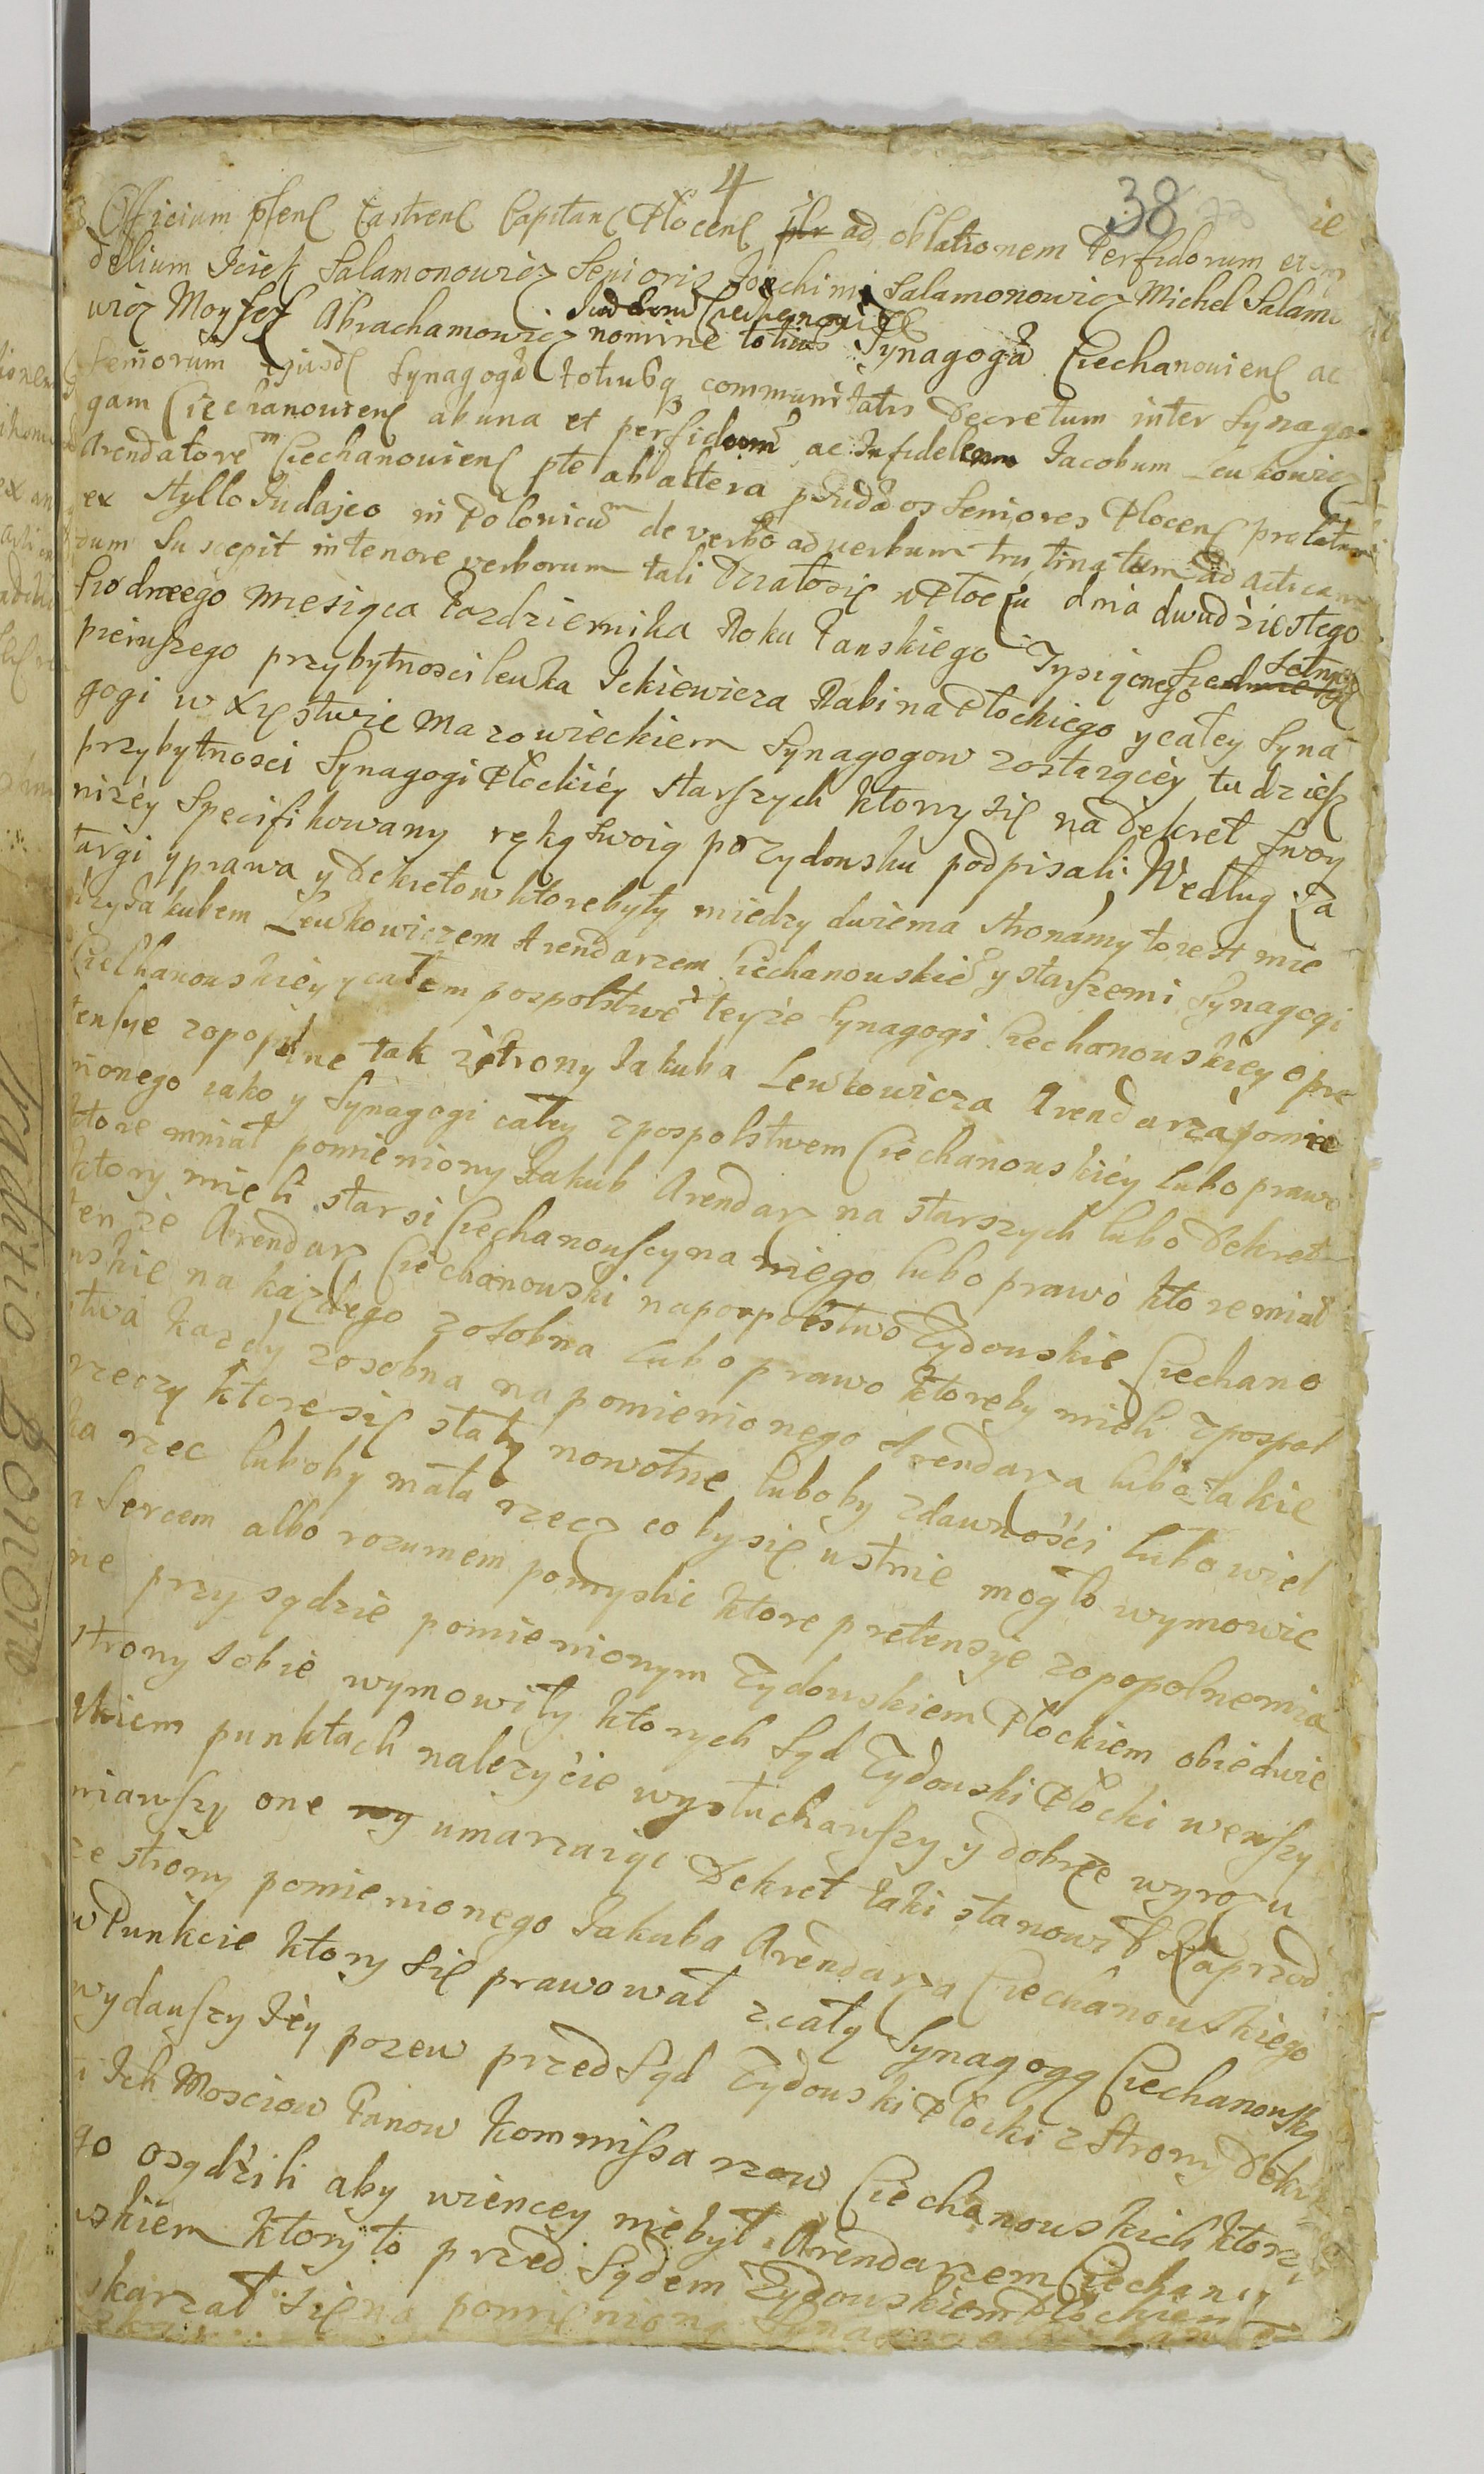 4
38
Officium pſenſ Castrenſ Capitanſ Płocenſ ad oblationem Perfidorum
delium Iciek Salamonowicz Senioris Joachimi Salamonowicz Michel Salamo
wicz Moyſeſz Abrachamowicz Judæorũ Ciechanovienſ nomine totius Synagogæ Ciechanovienſ ac
Seniorum ejusdſ Synagogæ totiusq communitatis Decretum inter Synago
gam Ciechanovienſ ab una et perfidum ac Infidelem Jacobum Leukowicz
Arendatorem Ciechanovienſ pte ab altera p Judæos Seniores Płocenſ prolatum
ex Styllo Judajco in Polonicum de verbo ad verbum trutinatum ad acticam
dum Suscepit in tenore verborum tali Działosię w Płocku dnia dwudziestego
Siodmego Miesiąca Pazdziernika Roku Panskiego Tysiącnego Siedmsetnego
pierwſzego przybytnosci lewka Ickiewicza Rabina Płockiego y całey Syna
gogi w Xięstwie Mazowieckiem Synagogow zostaiącey tudzieſz
przybytnosci Synagogi Płockiéy Starſzych ktorzy się na dekret Swoy
niżéy Specifikowany ręką Swoią po Zydowsku podpisali, Według Za
targi y prawa y Dekretow ktorebyły miedzy dwiema stronámy to iest mie
dzy Jakubem Lewkowiczem Arendarzem Ciechanouskiē y starſzemi Synagogi
Ciechanouskiéy y całem pospolstwē teyże Synagogi Ciechanouskiéy o pre
tensye zopojolne tak ze strony Jakuba Lewkowicza Arendarza pomie
nionego iako y Synagogi całey zpospolstwem Ciechanouskiéy lubo prawo
ktore mniał pomieniony Jakub Arendarz na starszych lubo Dekret
ktory mieli starsi Ciechanouscy na niego lubo prawo ktore miał
tenże Arendarz Ciechanouski na pospolstwo Zydouskie Ciechano
uskie na każdego zosobna lubo prawo ktoreby mieli zpospol
stwa kazdy zosobna na pomienionego Arendarza lubo takie
rzeczy ktore się stały nowotne luboby zdawności lubo wiel
ka rzec luboby mała rzecz co by się ustnie mogło wymowic
a Sercem albo rozumem pomyslic ktore pretensye zopopolnemia
ne przy sądzie pomienionym Zydouskiem Płockiem obiedwie
strony sobie wymowiły ktorych Sąd Zydouski Płocki wewſzy
stkiem punktach należycie wysłuchawſzy y dobrze wyrozu
miawſzy one umarzaiąc Dekret taki stanowił Naprzod
ze strony pomienionego Jakuba Arendarza Ciechanouskiego
w Punkcie ktory się prawował z całą Synagogą Ciechanouską
wydauſzy Jéy pozew przed Sąd Zydouski Płocki z Strony Dekre
tu Ich Mosciow Panow Kommiſsarzow Ciechanouskich ktorzi
go osądźili aby wiencey niebył Arendarzem Ciechano
uskiem ktory to przed Sądem Zydouskiem Płockiem
skarzał się na pomienioną Synagogę